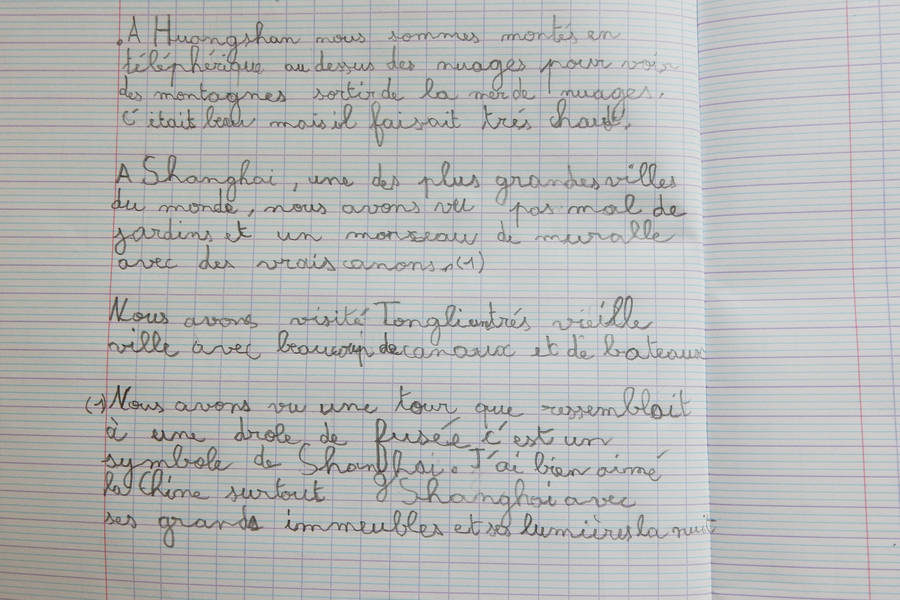 . A Huangshan nous sommes montés en
téléphérique au dessus des nuages pour voir
des montagnes sortir de la mer de nuages.
C'était beau mais il faisait trés chaud.
A Shanghai, une des plus grandes villes
du monde, nous avons vu pas mal de
jardins et un morseau de muralle
avec des vrais canons. (1)
Nous avons visité Tongli un trés vieille
ville avec beaucoup de canaux et de bateaux
(1) Nous avons vu une tour que ressemblait
à une drole de fusée c'est un
symbole de Shanghai. J'ai bien aimé
la Chine surtout Shanghai avec
ses grands immeubles et ses lumières la nuit